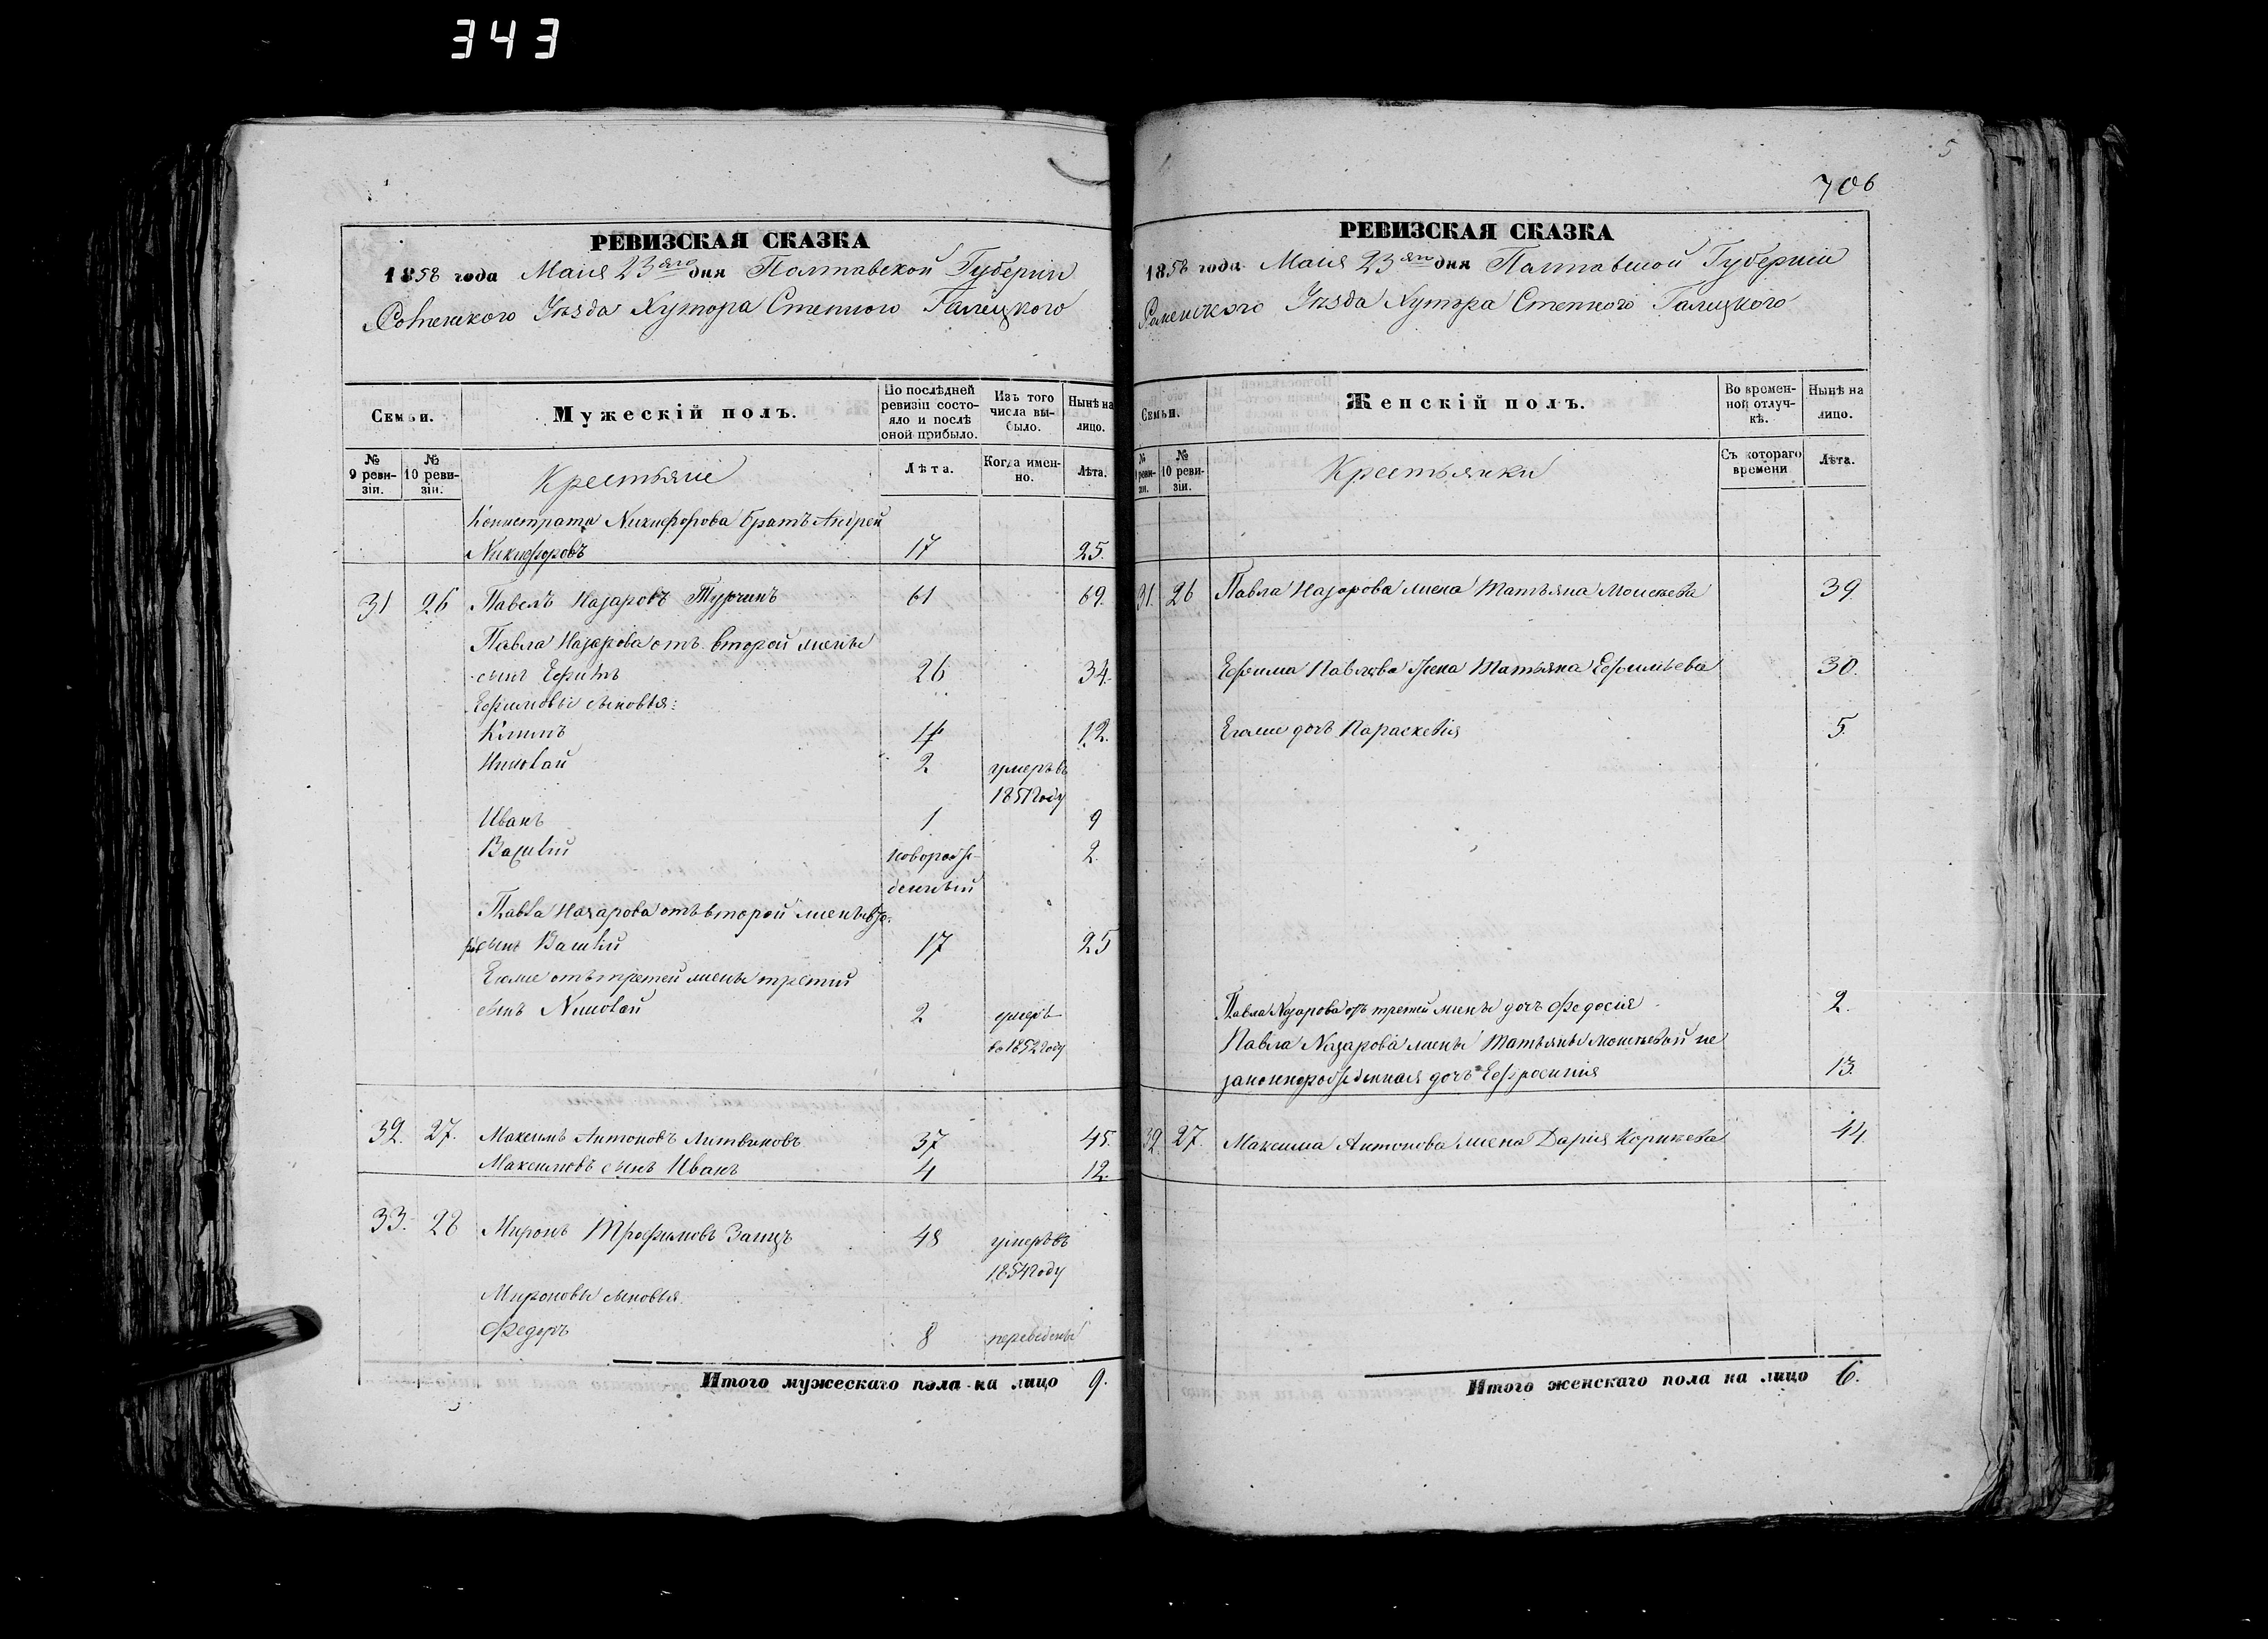 343
5
706
РЕВИЗСКАЯ СКАЗКА
1858 года Маія 23яго дня Полтавской Губерніи
Роменского Уѣзда Хутора Степного Галицкого
Семьи.
Мужескій полъ.
По послѣдней ревизіи состояло и послѣ оной прибыло.
Изъ того числа выбыло.
Нынѣ на лицо.
№ 9 ревизіи.
№ 10 ревизіи.
Крестьяне
Лѣта.
Когда именно.
Лѣта.
Никифорова братъ Андрей
Никифоровъ 17 25.
31 26 Павелъ Назаровъ Турчинъ 61 69.
Павла Назарова отъ второй жены
сынъ Ефимъ 26 34.
Ефимовы сыновья:
Климъ 4 12.
Николай 2 умеръ въ
1851 году
Иванъ 1 9
Василій новорож-
денный 2.
Павла Назарова отъ второй жены
сынъ Василій 17 25
Егоже отъ третей жены третій
сынъ Николай 2 умеръ
во 1852 году
32. 27. Максимъ Антоновъ Литвиновъ 37 45.
Максимовъ сынъ Иванъ 4 12.
33. 28 Миронъ Трофимовъ Заицъ 48 умеръ въ
1854 году
Мироновы сыновья
Федоръ 8 переведены
Итого мужескаго пола на лицо 9.
РЕВИЗСКАЯ СКАЗКА
1858 года Маія 23яго дня Полтавской Губерніи
Роменского Уѣзда Хутора Степного Галицкого
Семьи.
Женскій полъ.
Во временной отлучкѣ.
Нынѣ на лицо.
№ 9 ревизіи.
№ 10 ревизіи.
Крестьянки
Съ котораго времени
Лѣта.
31. 26 Павла Назарова жена Татьяна Моисеева 39.
Ефима Павлова жена Татьяна Ефимьева 30.
Егоже дочь Параскевія 5.
Павла Назарова отъ третей жены дочь Федосія 2.
Павла Назарова жены Татьяны Моисеевой не
законнорожденная дочь Ефросинія 13.
32. 27. Максима Антонова жена Дарія Корнеева 44.
Итого женскаго пола на лицо 6.